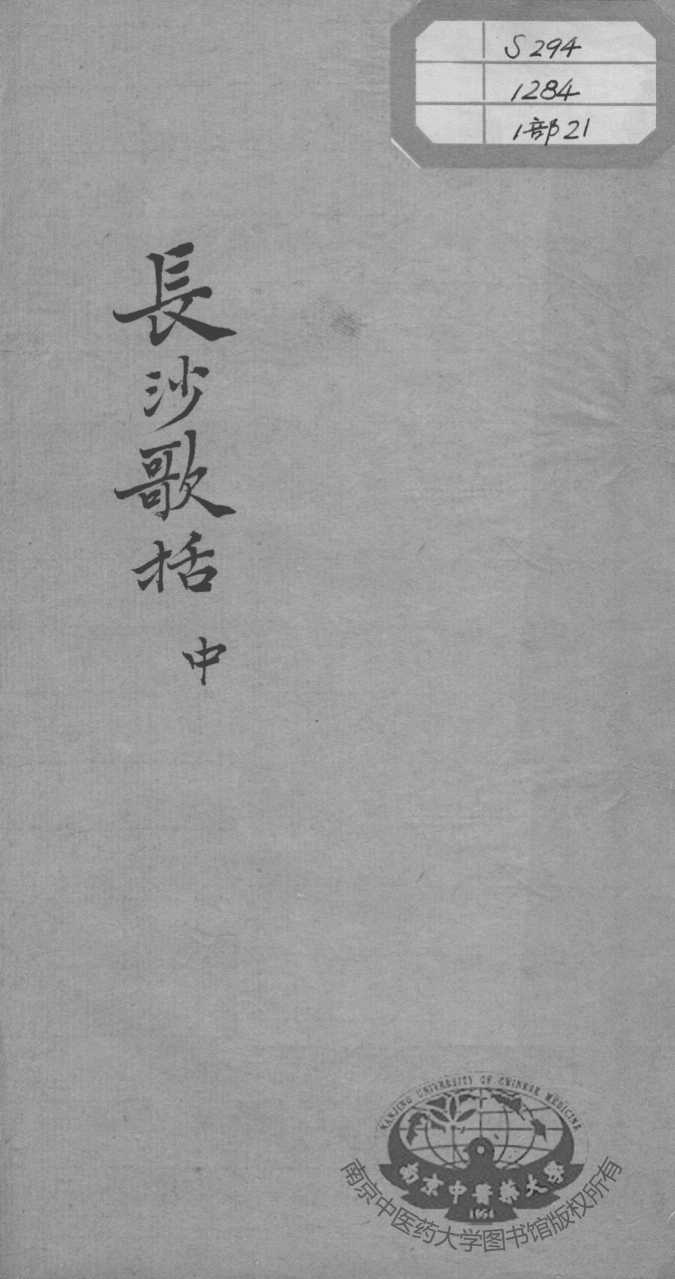 S294
1284
1部21
長沙歌括 中
NANJING UNIVERSITY OF CHINESE MEDICINE
南京中醫藥大學
1954
南京中医药大学图书馆版权所有